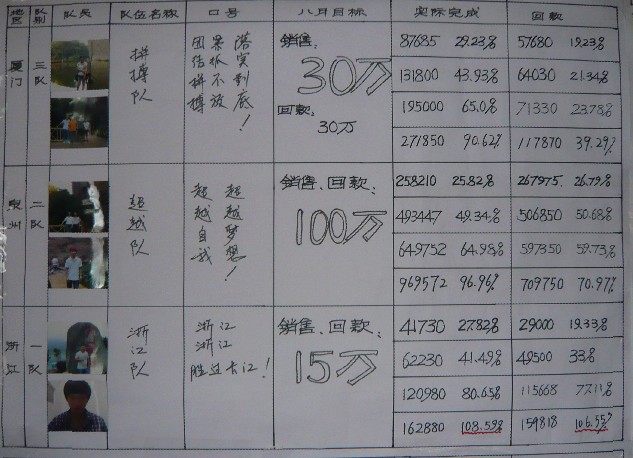 地区 队别 队员 队伍名称 口号 八月目标 实际完成 回款
厦门 三队 拼搏队
团结拼搏
落实到底！
销售：
30万
回款：
30万
87685 29.23% 57680 19.23%
131800 43.93% 64030 21.34%
195000 65.0% 71330 23.78%
271850 90.62% 117870 39.29%
泉州 二队 超越队
超越自我
超越梦想！
销售、回款：
100万
258210 25.82% 267975 26.79%
493447 49.34% 506850 50.68%
649752 64.98% 597350 59.73%
969572 96.96% 709750 70.97%
浙江 一队 浙江队
浙江
浙江
胜过长江！
销售、回款：
15万
41730 27.82% 29000 19.33%
62230 41.49% 49500 33%
120980 80.65% 115668 77.11%
162880 108.59% 159818 106.55%